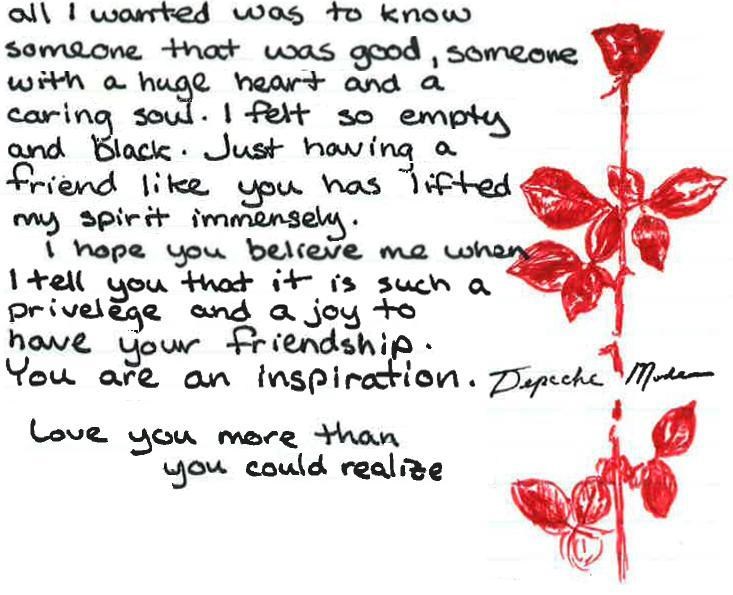 all I wanted was to know
someone that was good, someone
with a huge heart and a
caring soul. I felt so empty
and black. Just having a
friend like you has lifted
my spirit immensely.
I hope you believe me when
I tell you that it is such a
privelege and a joy to
have your friendship.
You are an inspiration.
Depeche Mode
Love you more than
you could realize